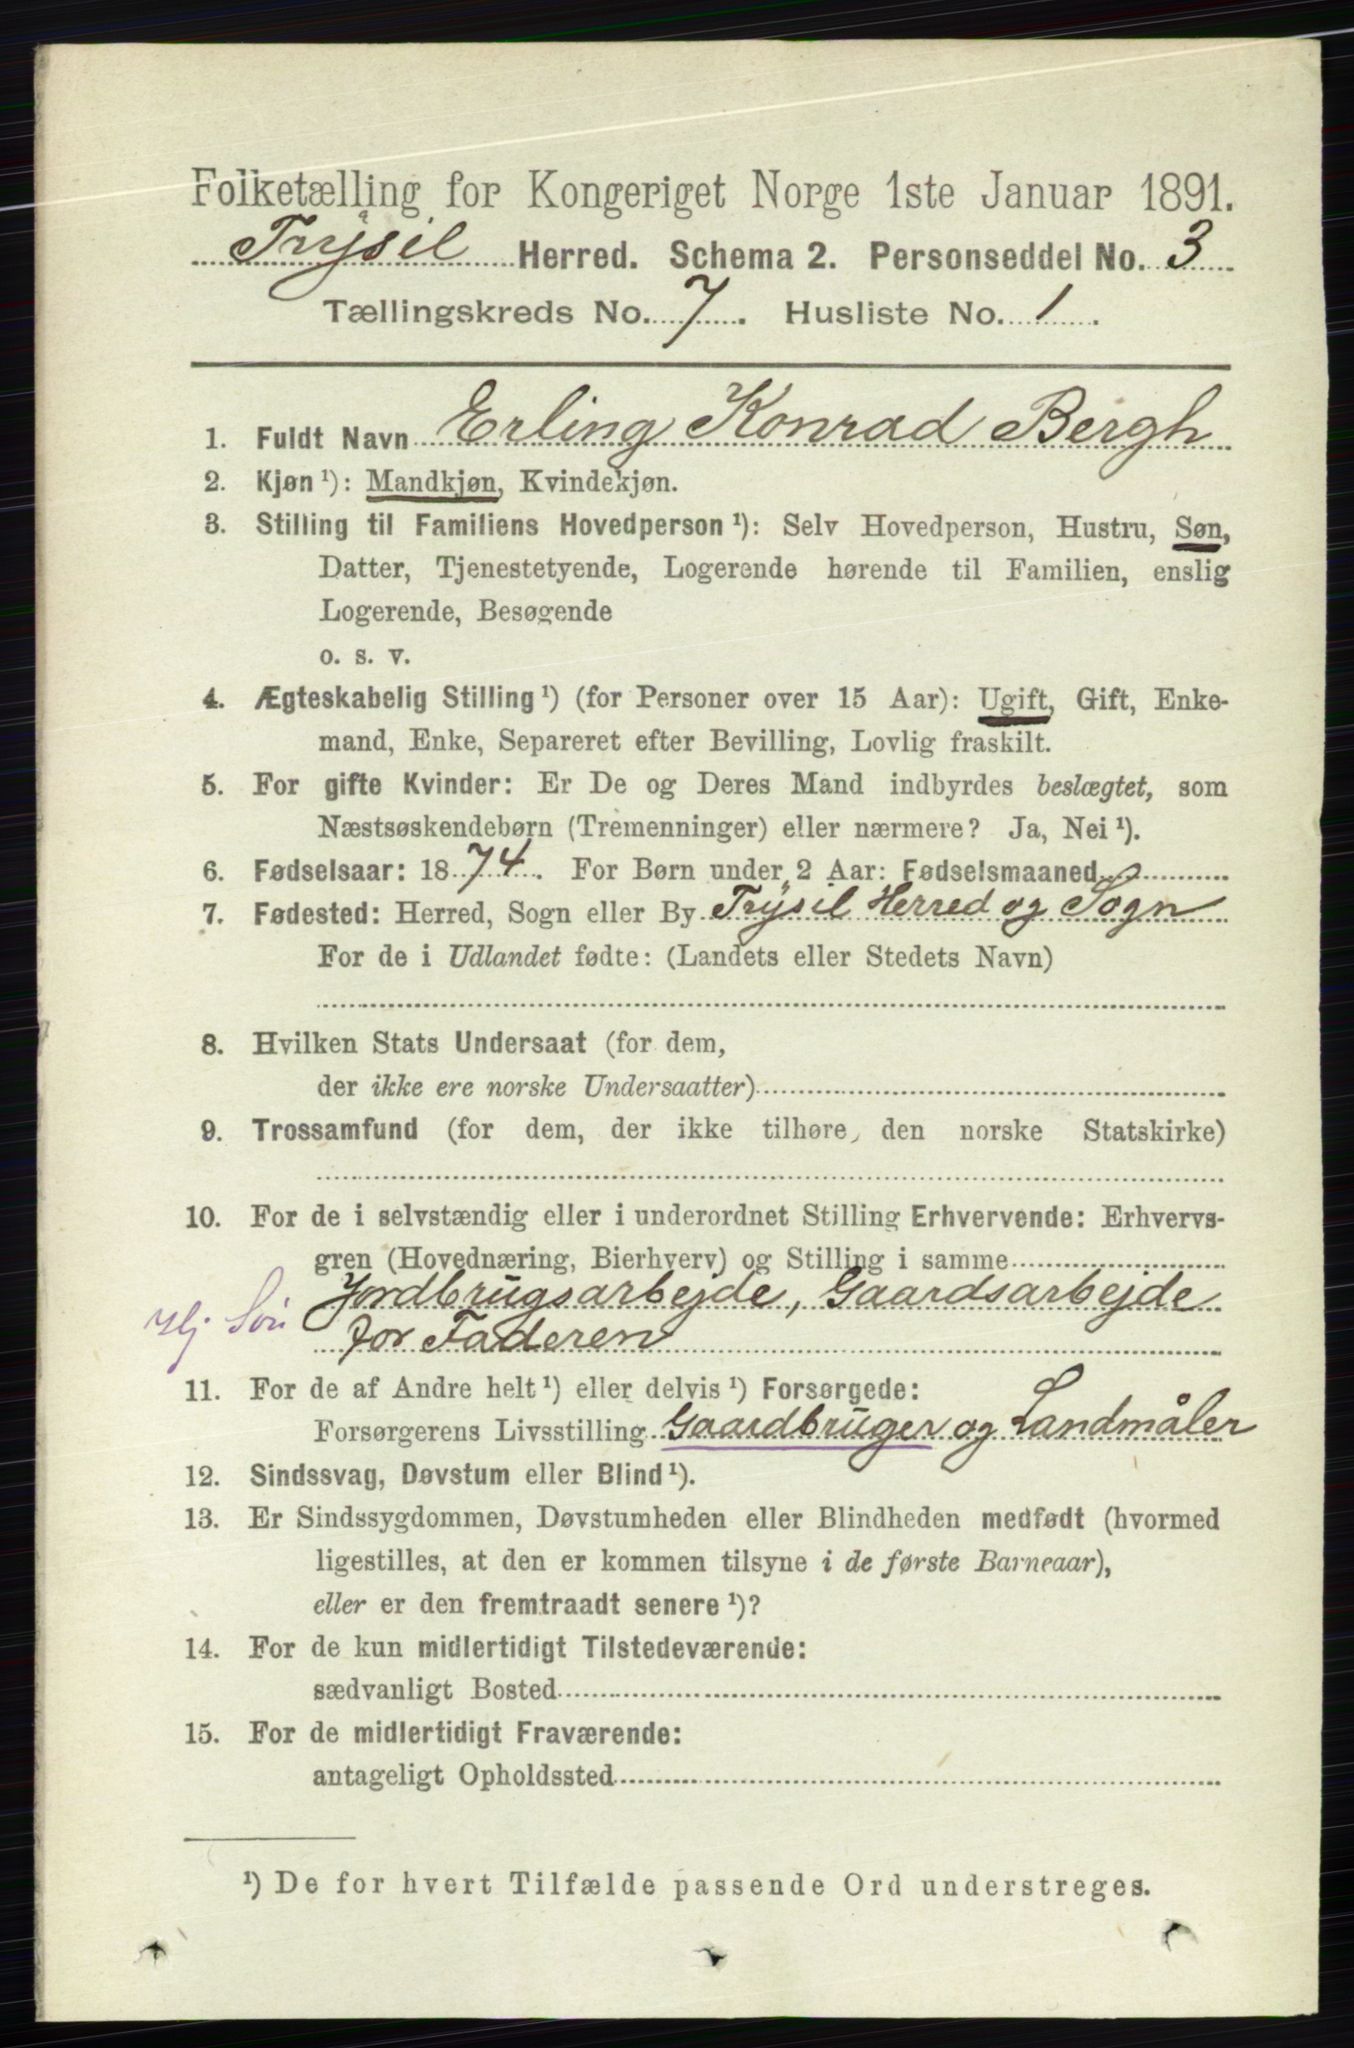 Folketælling for Kongeriget Norge 1ste Januar 1891.
Trysil Herred. Schema 2. Personseddel No. 3
Tællingskreds No. 7. Husliste No. 1.
1. Fuldt Navn Erling Konrad Bergh
2. Kjøn ¹): Mandkjøn, Kvindekjøn.
3. Stilling til Familiens Hovedperson ¹): Selv Hovedperson, Hustru, Søn,
Datter, Tjenestetyende, Logerende hørende til Familien, enslig
Logerende, Besøgende
o. s. v.
4. Ægteskabelig Stilling ¹) (for Personer over 15 Aar): Ugift, Gift, Enke-
mand, Enke, Separeret efter Bevilling, Lovlig fraskilt.
5. For gifte Kvinder: Er De og Deres Mand indbyrdes beslægtet, som
Næstsøskendebørn (Tremenninger) eller nærmere? Ja, Nei ¹).
6. Fødselsaar: 1874. For Børn under 2 Aar: Fødselsmaaned
7. Fødested: Herred, Sogn eller By Trysil Herred og Sogn
For de i Udlandet fødte: (Landets eller Stedets Navn)
8. Hvilken Stats Undersaat (for dem,
der ikke ere norske Undersaatter)
9. Trossamfund (for dem, der ikke tilhøre den norske Statskirke)
10. For de i selvstændig eller i underordnet Stilling Erhvervende: Erhvervs-
gren (Hovednæring, Bierhverv) og Stilling i samme
Jordbrugsarbejde, Gaardsarbejde
Hj Søn for Faderen
11. For de af Andre helt ¹) eller delvis ¹) Forsørgede:
Forsørgerens Livsstilling Gaardbruger og Landmåler
12. Sindssvag, Døvstum eller Blind ¹).
13. Er Sindssygdommen, Døvstumheden eller Blindheden medfødt (hvormed
ligestilles, at den er kommen tilsyne i de første Barneaar),
eller er den fremtraadt senere ¹)?
14. For de kun midlertidigt Tilstedeværende:
sædvanligt Bosted
15. For de midlertidigt Fraværende:
antageligt Opholdssted
¹) De for hvert Tilfælde passende Ord understreges.